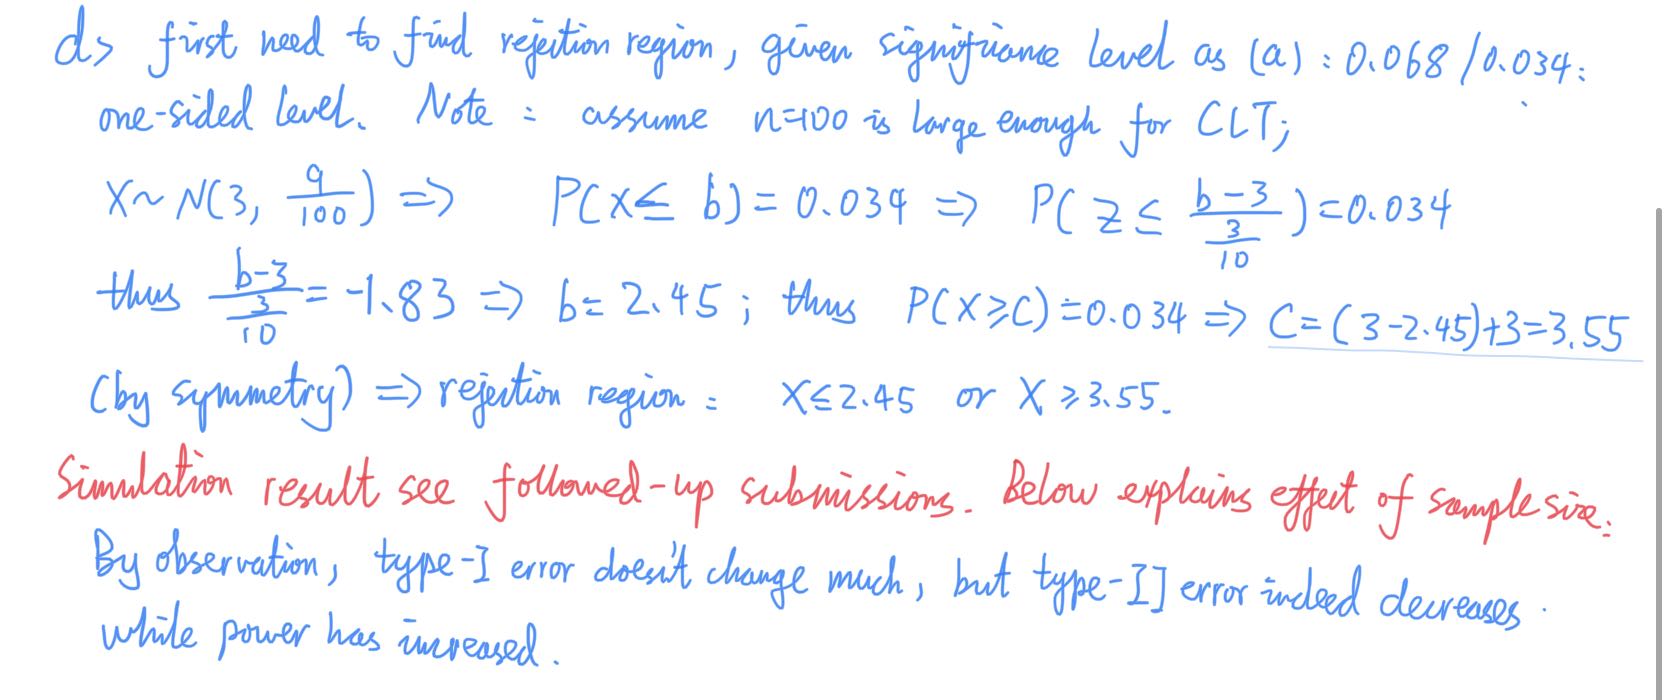 d> first need to find rejection region, given significance level as (a): 0.068/0.034:
one-sided level. Note: assume n=100 is large enough for CLT;
X~N(3, 9/100) => P(X≤ b)=0.034 => P(Z≤ (b-3)/(3/10))=0.034
thus (b-3)/(3/10) = -1.83 => b= 2.45; thus P(X≥C)=0.034 => C=(3-2.45)+3=3.55
(by symmetry) => rejection region: X≤2.45 or X≥3.55.
Simulation result see followed-up submissions. Below explains effect of sample size:
By observation, type-I error doesn't change much, but type-II error indeed decreases
while power has increased.